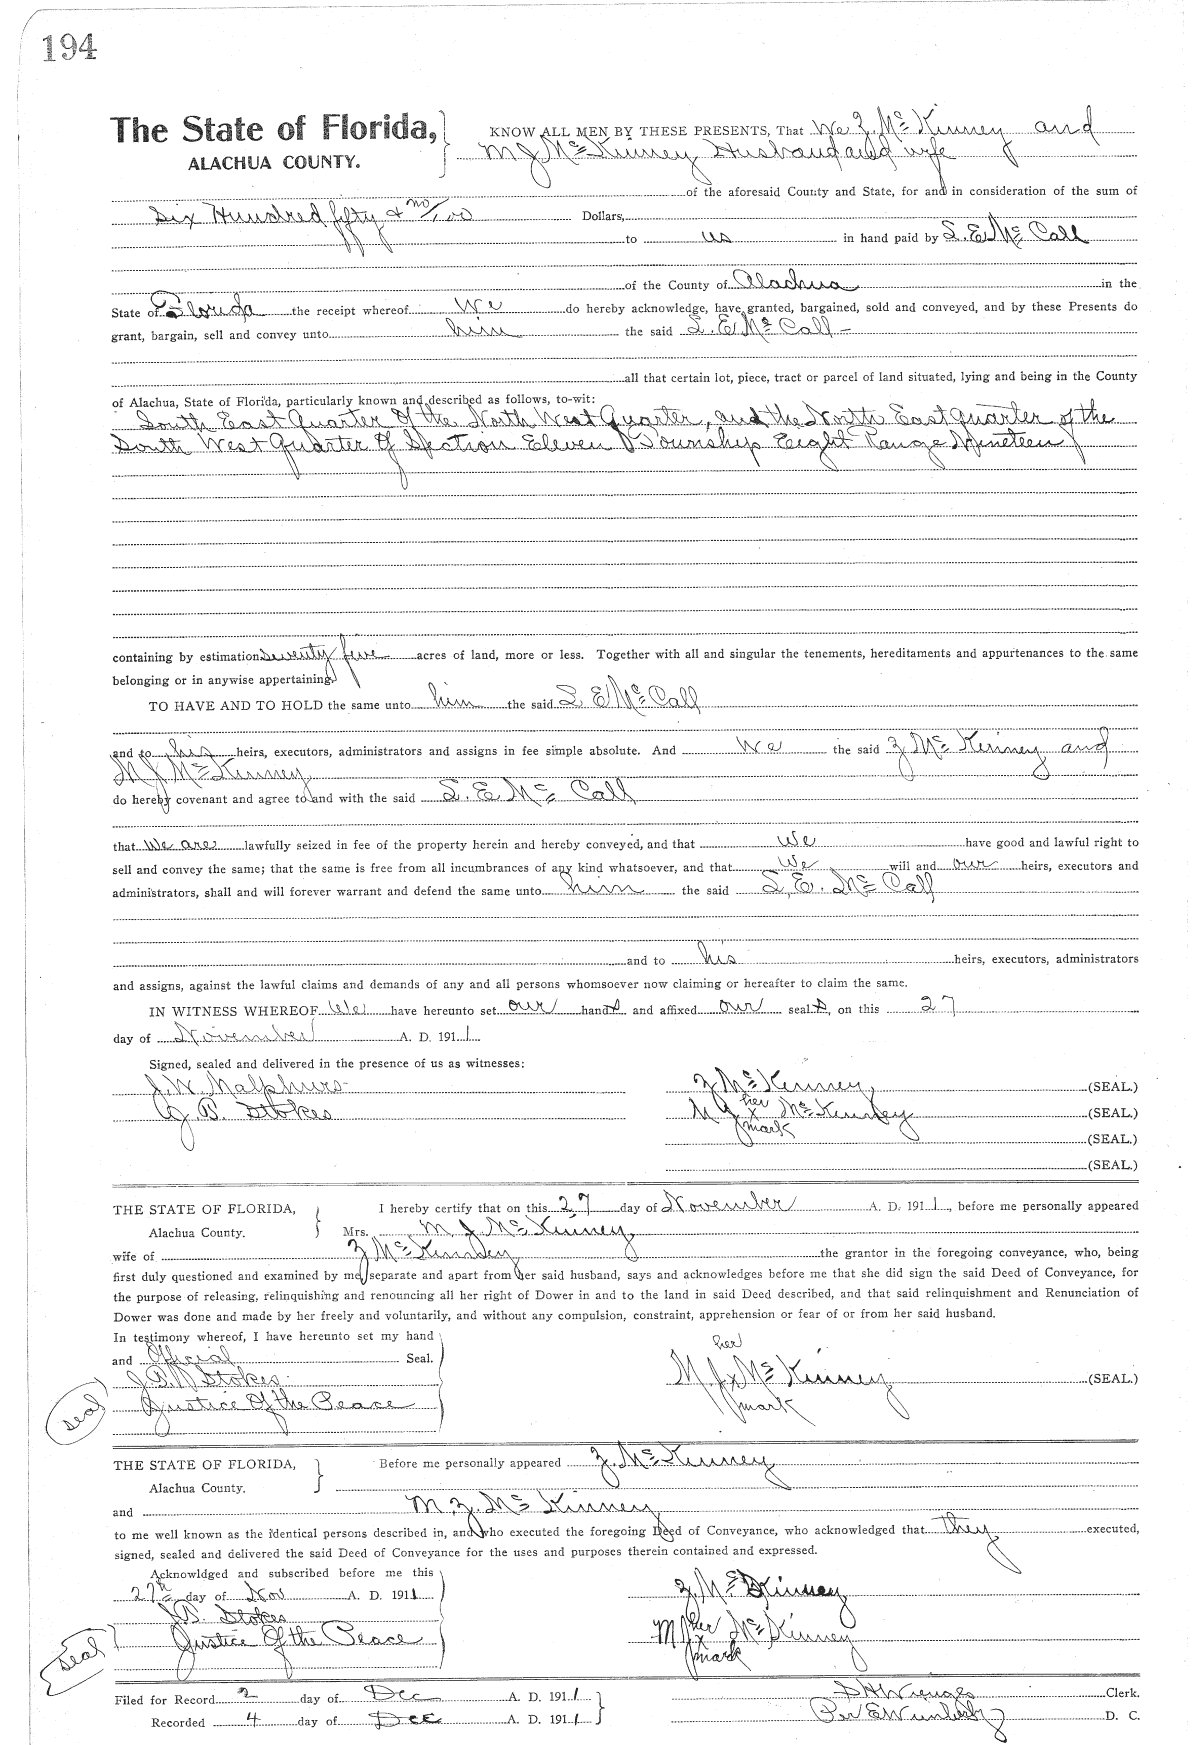 194
The State of Florida, KNOW ALL MEN BY THESE PRESENTS, That We Z. McKinney and
ALACHUA COUNTY. M J McKinney Husband and wife
of the aforesaid County and State, for and in consideration of the sum of
Six Hundred fifty & no/100 Dollars,
to us in hand paid by S. E. McCall
of the County of Alachua in the
State of Florida the receipt whereof We do hereby acknowledge, have granted, bargained, sold and conveyed, and by these Presents do
grant, bargain, sell and convey unto him the said S. E. McCall
all that certain lot, piece, tract or parcel of land situated, lying and being in the County
of Alachua, State of Florida, particularly known and described as follows, to-wit:
South East Quarter Of the North West Quarter, and the North East Quarter of the
South West Quarter Of Section Eleven Township Eight Range Nineteen
containing by estimation seventy five acres of land, more or less. Together with all and singular the tenements, hereditaments and appurtenances to the same
belonging or in anywise appertaining.
TO HAVE AND TO HOLD the same unto him the said S E McCall
and to his heirs, executors, administrators and assigns in fee simple absolute. And We the said Z McKinney and
M J McKinney
do hereby covenant and agree to and with the said S. E. McCall
that We are lawfully seized in fee of the property herein and hereby conveyed, and that We have good and lawful right to
sell and convey the same; that the same is free from all incumbrances of any kind whatsoever, and that We will and our heirs, executors and
administrators, shall and will forever warrant and defend the same unto him the said S. E. McCall
and to his heirs, executors, administrators
and assigns, against the lawful claims and demands of any and all persons whomsoever now claiming or hereafter to claim the same.
IN WITNESS WHEREOF We have hereunto set our hands and affixed our seals, on this 27
day of November A. D. 1911.
Signed, sealed and delivered in the presence of us as witnesses:
J. W. Malphurs Z McKinney (SEAL.)
J. B. Stokes M J her x mark McKinney (SEAL.)
(SEAL.)
(SEAL.)
THE STATE OF FLORIDA, I hereby certify that on this 27 day of November A. D. 1911, before me personally appeared
Alachua County. Mrs. M J McKinney
wife of Z McKinney the grantor in the foregoing conveyance, who, being
first duly questioned and examined by me, separate and apart from her said husband, says and acknowledges before me that she did sign the said Deed of Conveyance, for
the purpose of releasing, relinquishing and renouncing all her right of Dower in and to the land in said Deed described, and that said relinquishment and Renunciation of
Dower was done and made by her freely and voluntarily, and without any compulsion, constraint, apprehension or fear of or from her said husband.
In testimony whereof, I have hereunto set my hand
and Official Seal.
J. B. Stokes M. J. her x mark McKinney (SEAL.)
seal Justice Of the Peace
THE STATE OF FLORIDA, Before me personally appeared Z. McKinney
Alachua County.
and M. Z. McKinney
to me well known as the identical persons described in, and who executed the foregoing Deed of Conveyance, who acknowledged that they executed,
signed, sealed and delivered the said Deed of Conveyance for the uses and purposes therein contained and expressed.
Acknowldged and subscribed before me this
27th day of Nov A. D. 1911 Z. McKinney
J. B. Stokes
seal Justice Of the Peace M J her x mark McKinney
Filed for Record 2 day of Dec A. D. 1911 Clerk.
Recorded 4 day of Dec A. D. 1911 Per D. C.